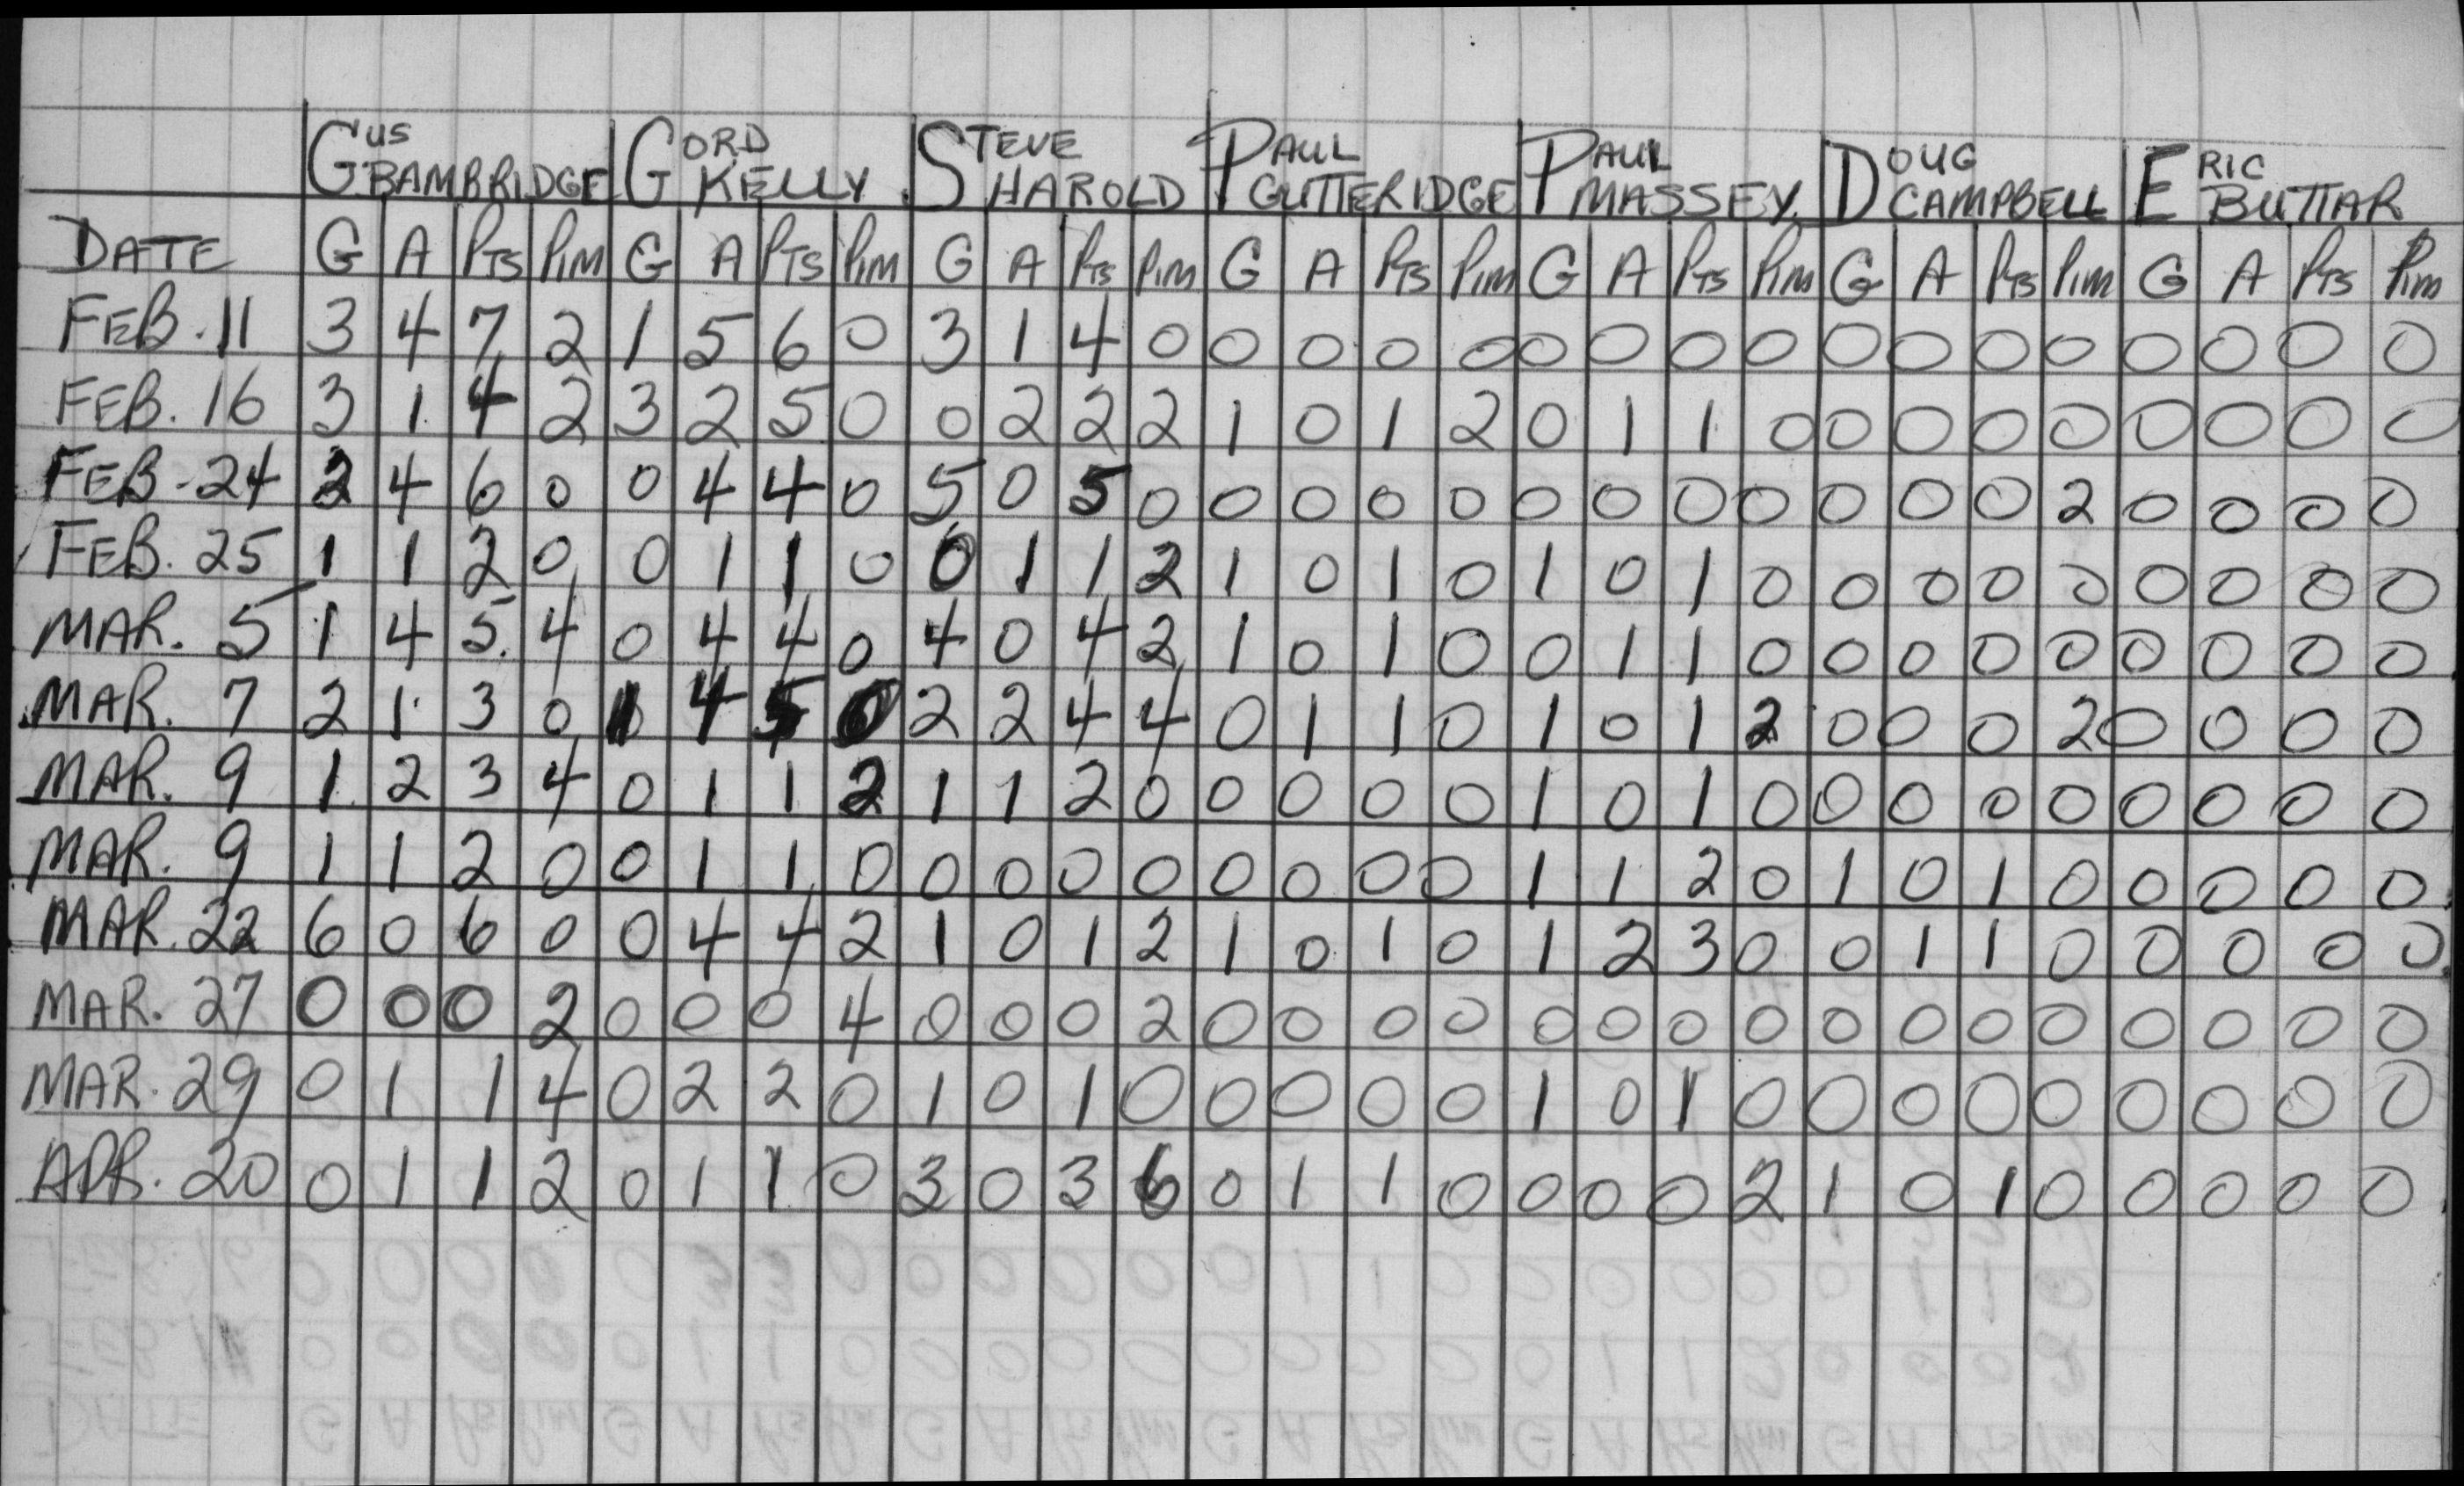 GUS BAMBRIDGE GORD KELLY STEVE HAROLD PAUL GUTTERIDGE PAUL MASSEY DOUG CAMPBELL ERIC BUTTAR
DATE G A PTS PIM G A PTS PIM G A PTS PIM G A PTS PIM G A PTS PIM G A PTS PIM G A PTS PIM
FEB. 11 3 4 7 2 1 5 6 0 3 1 4 0 0 0 0 0 0 0 0 0 0 0 0 0 0 0 0 0
FEB. 16 3 1 4 2 3 2 5 0 0 2 2 2 1 0 1 2 0 1 1 0 0 0 0 0 0 0 0 0
FEB - 24 2 4 6 0 0 4 4 0 5 0 5 0 0 0 0 0 0 0 0 0 0 0 0 2 0 0 0 0
FEB. 25 1 1 2 0 0 1 1 0 0 1 1 2 1 0 1 0 1 0 1 0 0 0 0 0 0 0 0 0
MAR. 5 1 4 5 4 0 4 4 0 4 0 4 2 1 0 1 0 0 1 1 0 0 0 0 0 0 0 0 0
MAR. 7 2 1 3 0 1 4 5 0 2 2 4 4 0 1 1 0 1 0 1 2 0 0 0 2 0 0 0 0
MAR. 9 1 2 3 4 0 1 1 2 1 1 2 0 0 0 0 0 1 0 1 0 0 0 0 0 0 0 0 0
MAR. 9 1 1 2 0 0 1 1 0 0 0 0 0 0 0 0 0 1 1 2 0 1 0 1 0 0 0 0 0
MAR. 22 6 0 6 0 0 4 4 2 1 0 1 2 1 0 1 0 1 2 3 0 0 1 1 0 0 0 0 0
MAR. 27 0 0 0 2 0 0 0 4 0 0 0 2 0 0 0 0 0 0 0 0 0 0 0 0 0 0 0 0
MAR. 29 0 1 1 4 0 2 2 0 1 0 1 0 0 0 0 0 1 0 1 0 0 0 0 0 0 0 0 0
APR. 20 0 1 1 2 0 1 1 0 3 0 3 6 0 1 1 0 0 0 0 2 1 0 1 0 0 0 0 0